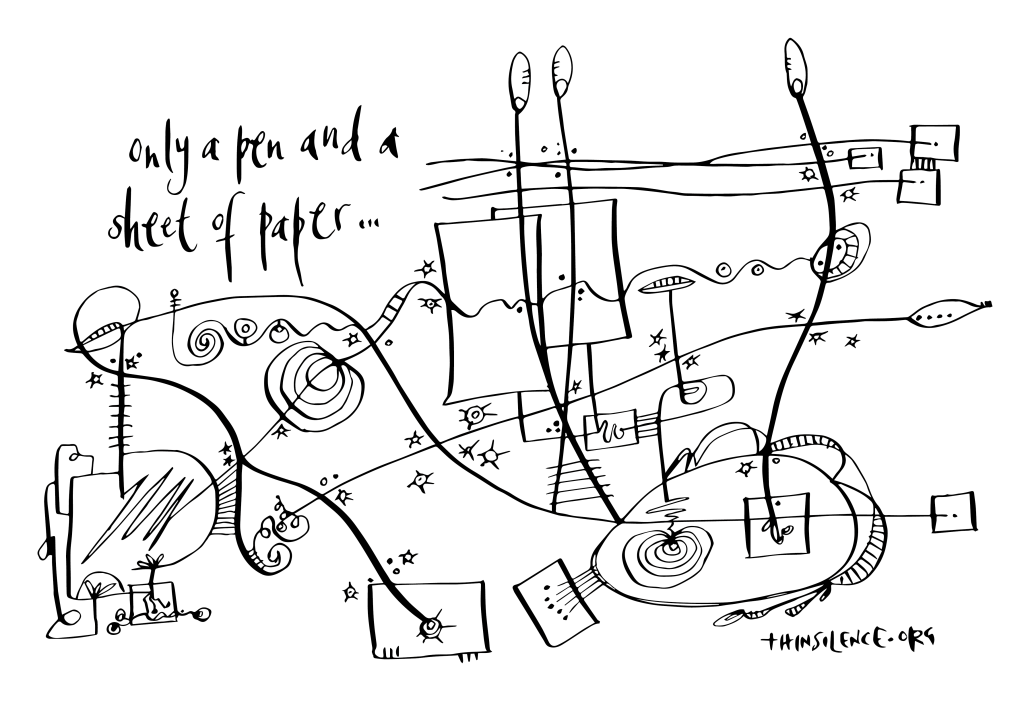 only a pen and a
sheet of paper...
THINSILENCE.ORG